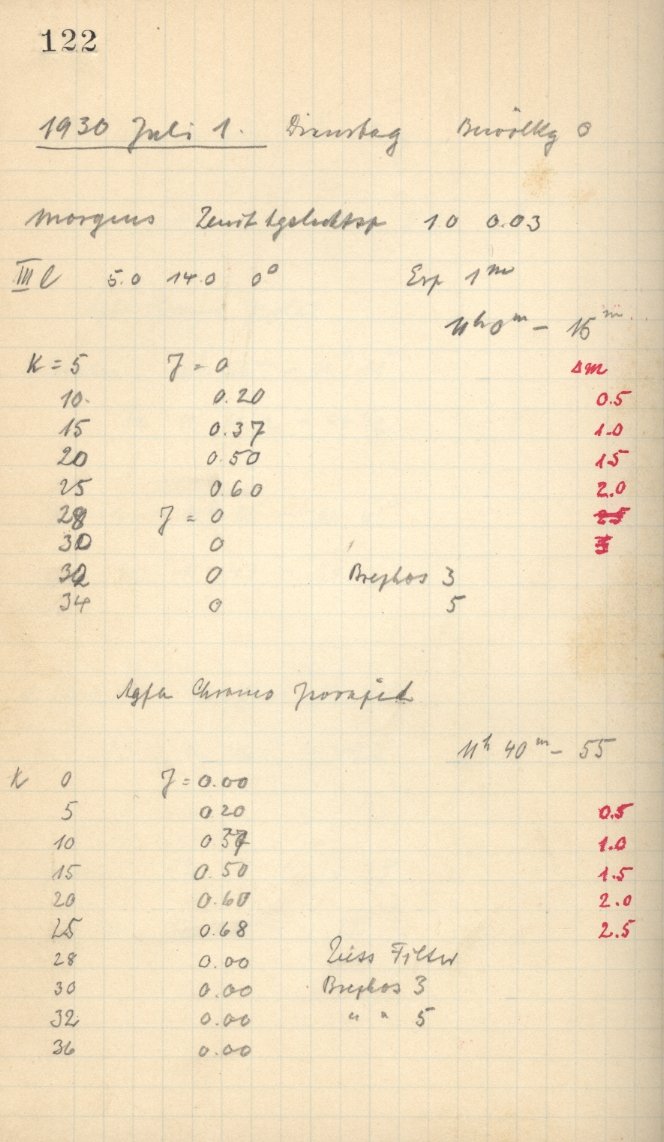 122
1930 Juli 1. Dienstag Bewölkg 0
Morgens Zenit 10 0.03
III l 5.0 14.0 0° Exp 1ᵐ
11ʰ0ᵐ – 15ᵐ
K = 5 J = 0 Δm
10. 0.20 0.5
15 0.37 1.0
20 0.50 1.5
25 0.60 2.0
28 J = 0 2.5
30 0
32 0 Brephos 3
34 0 5
Agfa Chromo
11ʰ 40ᵐ – 55
K 0 J = 0.00
5 0.20 0.5
10 0.37 1.0
15 0.50 1.5
20 0.60 2.0
25 0.68 2.5
28 0.00 Zeiss Filter
30 0.00 Brephos 3
32 0.00 " " 5
36 0.00